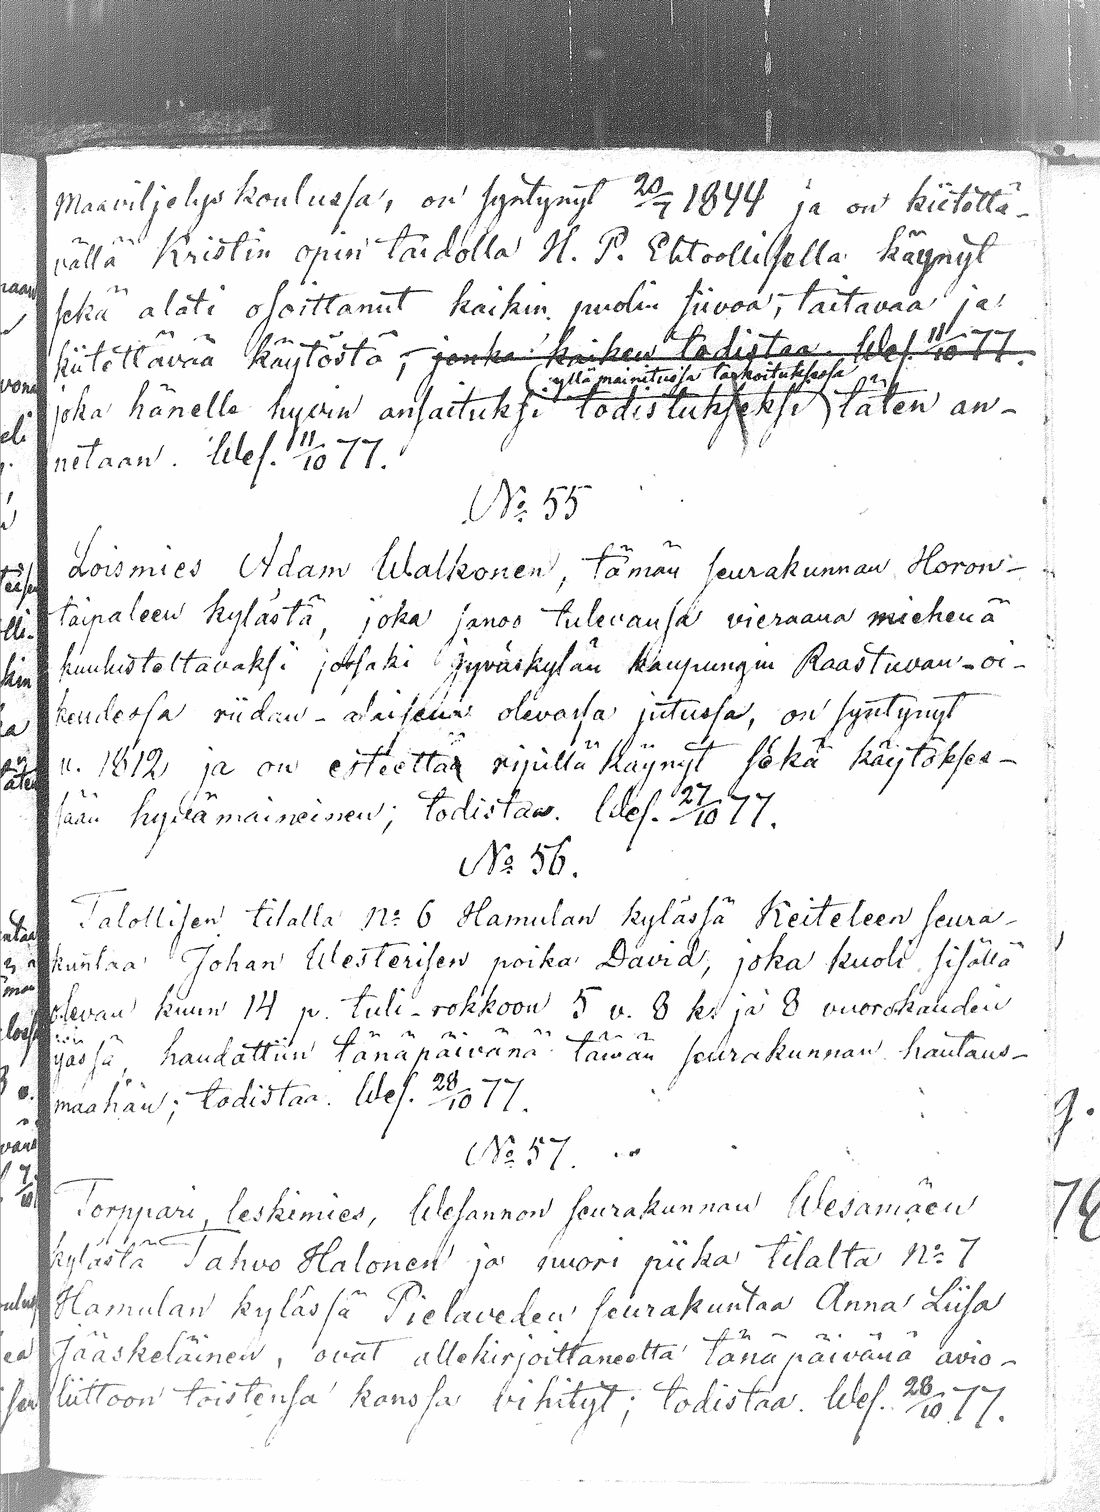 maaviljelyskoulussa, on syntynyt 20/7 1844 ja on kiitettä-
vällä Kristin opin taidolla H. P. Ehtoollisella käynyt
sekä alati osoittanut kaikin puolin siivoa, taitavaa ja
kiitettävää käytöstä, jonka kaiken todistaa. Wes. 11/10 77.
yllämainitussa tarkoituksessa
joka hänelle hyvin ansaituksi todistukseksi täten an-
netaan. Wes. 11/10 77.
No 55
Loismies Adam Walkonen, tämän seurakunnan Horon-
taipaleen kylästä, joka sanoo tulevansa vieraana miehenä
kuulusteltavaksi jossaki Jyväskylän kaupungin Raastuvan-oi-
keudessa riidan-alaisena olevassa jutussa, on syntynyt
v. 1812 ja on esteettä ripillä käynyt sekä käytökses-
sään hyvämaineinen; todistaa. Wes. 27/10 77.
No 56.
Talollisen tilalla No 6 Hamulan kylässä Keiteleen seura-
kuntaa Johan Westerisen poika David, joka kuoli sisällä
olevan kuun 14 p. tuli-rokkoon 5 v. 8 k. ja 8 vuorokauden
ijässä, haudattiin tänäpäivänä tämän seurakunnan hautaus-
maahan; todistaa. Wes. 28/10 77.
No 57.
Torppari, leskimies, Wesannon seurakunnan Wesamäen
kylästä Tahvo Halonen ja nuori piika tilalta No 7
Hamulan kylässä Pielaveden seurakuntaa Anna Liisa
Jääskeläinen, ovat allekirjoittaneelta tänäpäivänä avio-
liittoon toistensa kanssa vihityt; todistaa. Wes. 28/10 77.